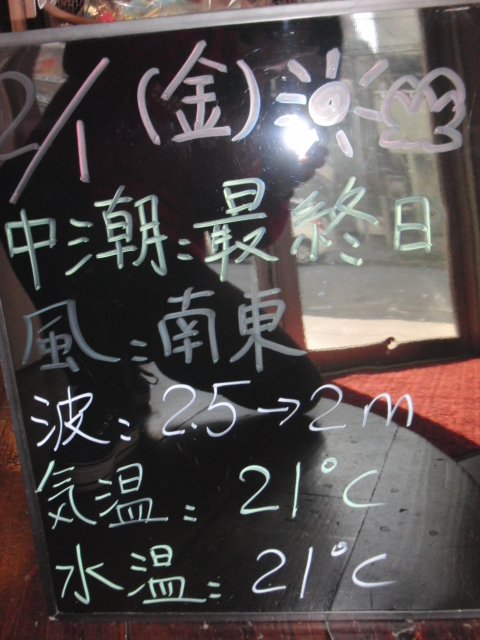 2/1(金)
中潮:最終日
風:南東
波:2.5→2m
気温:21℃
水温:21℃